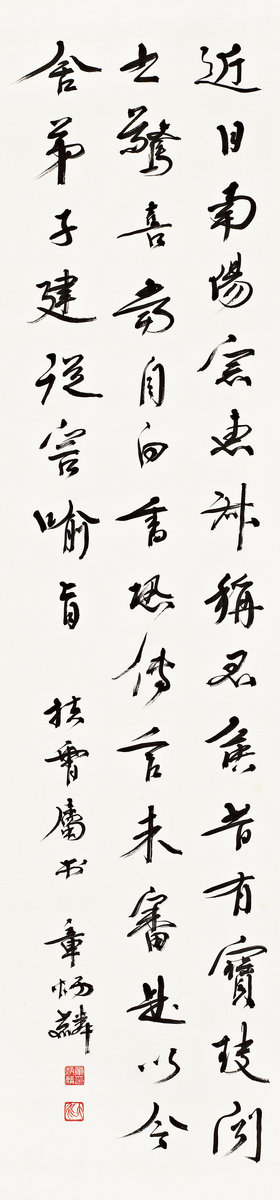 近日南陽宗惠叔稱君侯昔有寶玦聞
之驚喜當自白書恐傳言未審是以令
舍弟子建從容喻旨
屬書 章炳麟